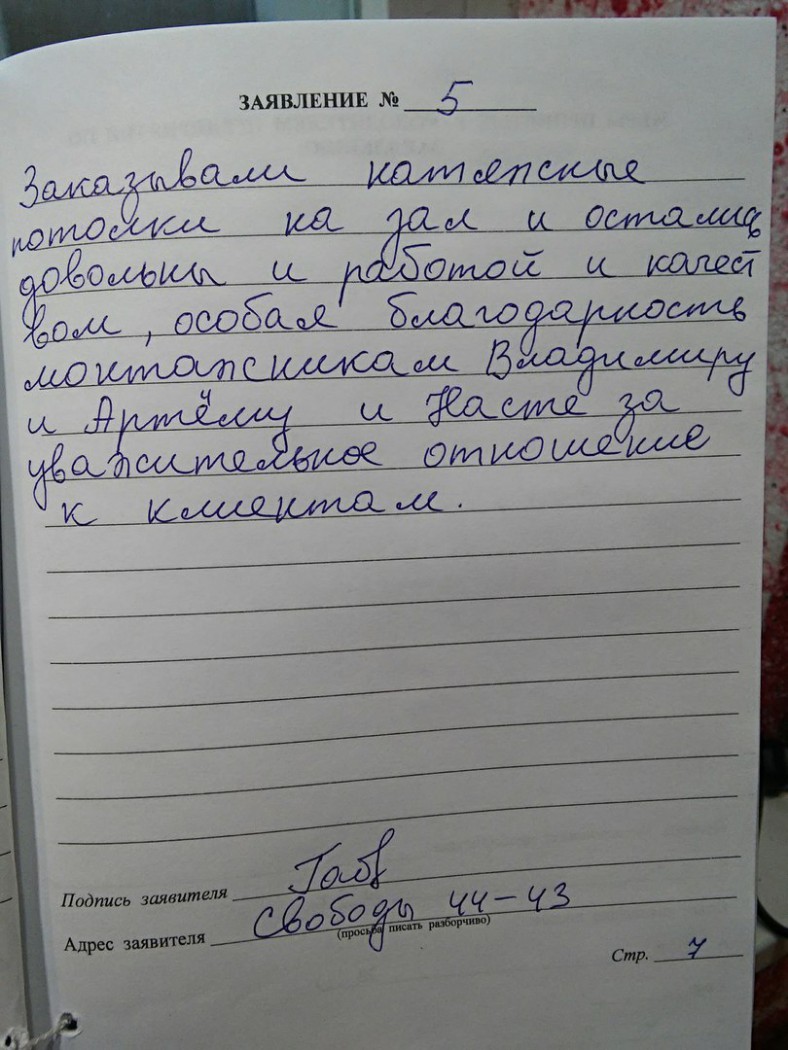 ЗАЯВЛЕНИЕ № 5
Заказывали натяжные
потолки на зал и остались
довольны и работой и качест
вом, особая благодарность
монтажникам Владимиру
и Артёму и Насте за
уважительное отношение
к клиентам.
Подпись заявителя
Свободы 44-43
Адрес заявителя (просьба писать разборчиво)
Стр. 7